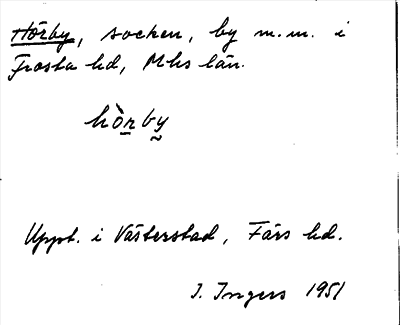 Hörby, socken, by m.m. i
Frosta hd, Mhs län.
hònby
Uppt. i Västerstad, Färs hd.
I. Ingers 1951